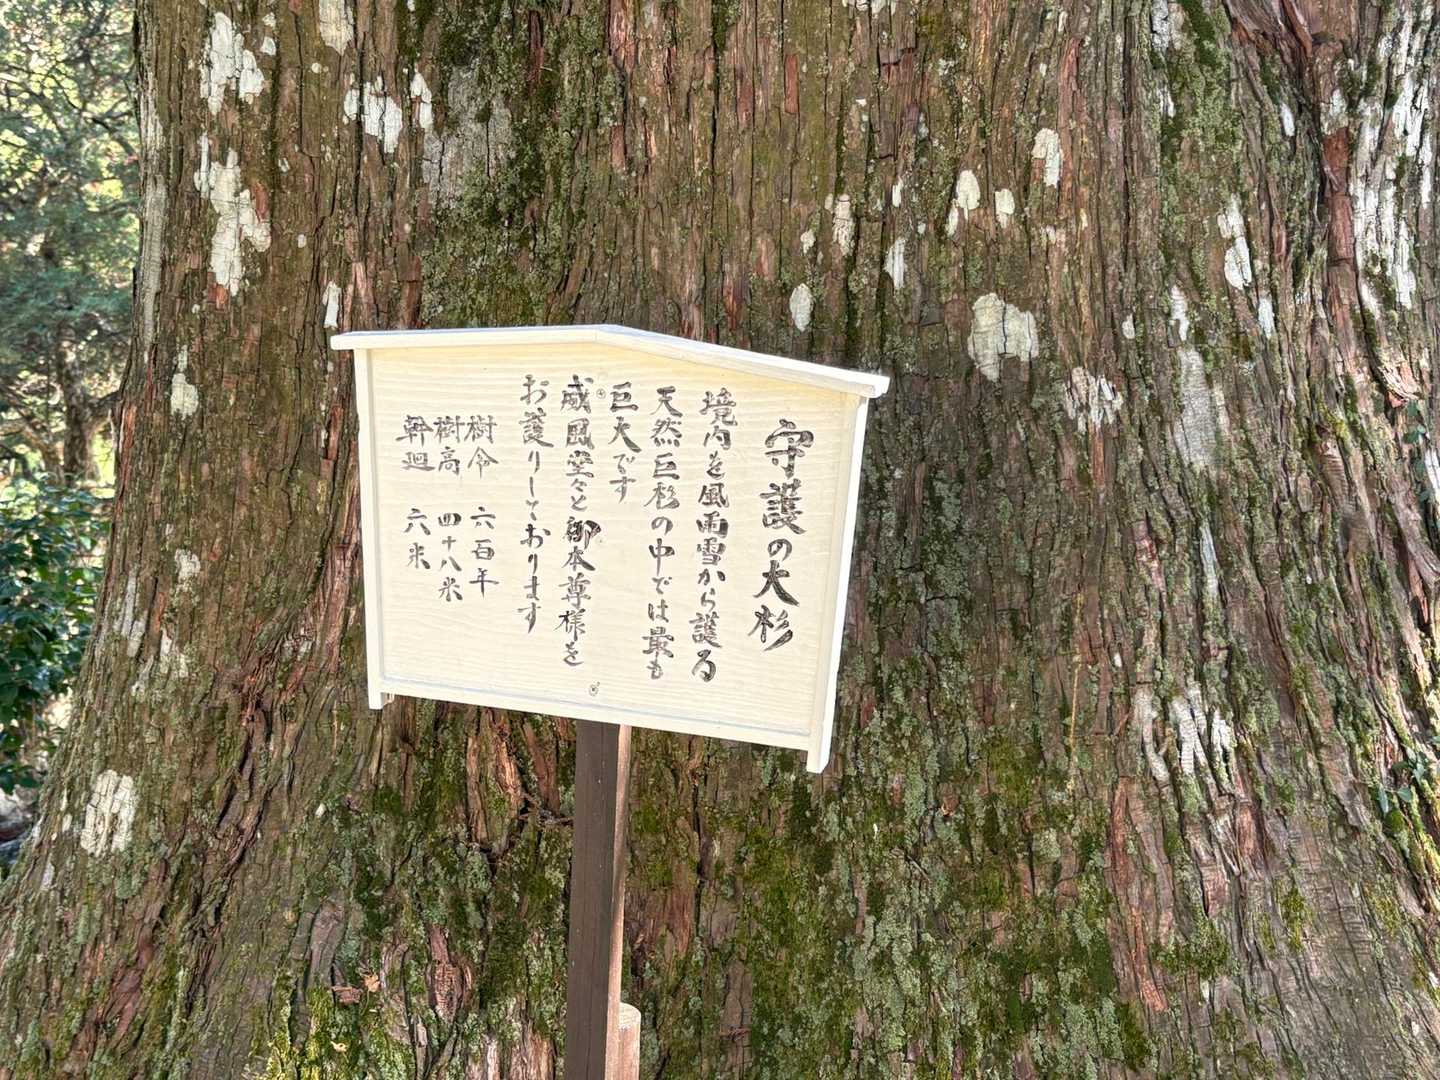 守護の大杉
境内を風雨雪から護る
天然巨杉の中では最も
巨大です
威風堂々と御本尊様を
お護りしております
樹令 六百年
樹高 四十八米
幹廻 六米